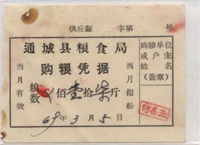 供应证 字第 号
通城县粮食局
购粮凭据
当月有效
当月指标
购粮单位或户主姓名
(盖章)
粮数 佰壹拾柒斤
69年3月5日